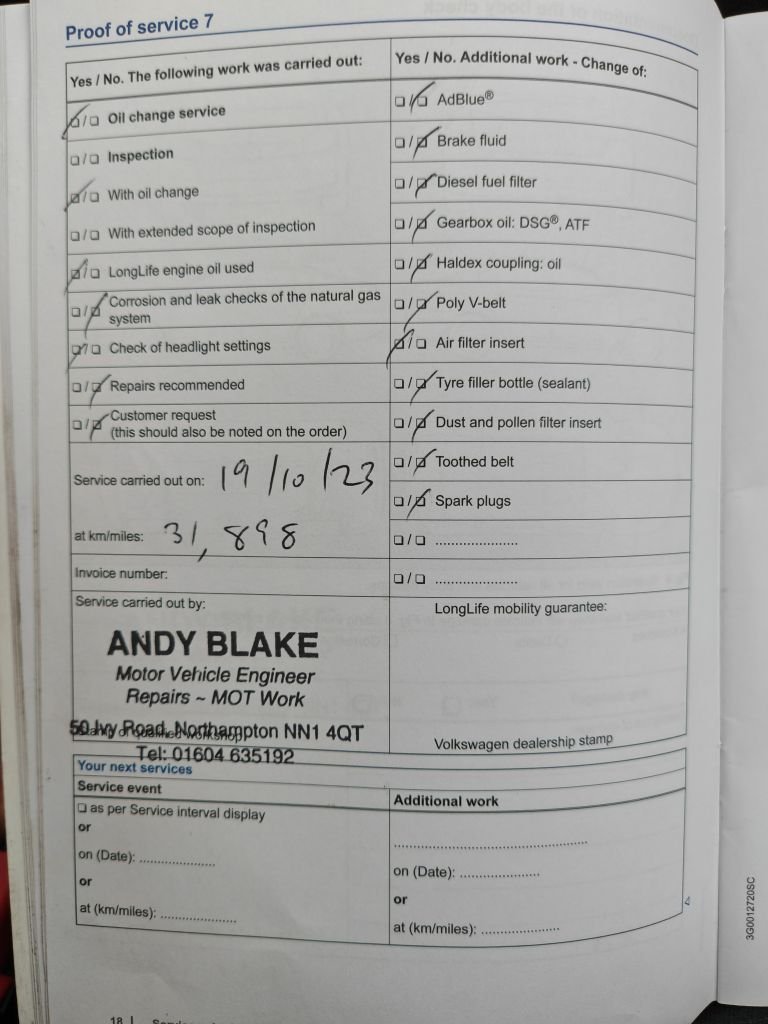 Proof of service 7
Yes / No. The following work was carried out:
☑/☐ Oil change service
☐/☐ Inspection
☑/☐ With oil change
☐/☐ With extended scope of inspection
☑/☐ LongLife engine oil used
☐/☑ Corrosion and leak checks of the natural gas
system
☑/☐ Check of headlight settings
☐/☑ Repairs recommended
☐/☑ Customer request
(this should also be noted on the order)
Service carried out on: 19/10/23
at km/miles: 31,898
Invoice number:
Service carried out by:
ANDY BLAKE
Motor Vehicle Engineer
Repairs ~ MOT Work
50 Ivy Road, Northampton NN1 4QT
Tel: 01604 635192
Yes / No. Additional work - Change of:
☐/☑ AdBlue®
☐/☑ Brake fluid
☐/☑ Diesel fuel filter
☐/☑ Gearbox oil: DSG®, ATF
☐/☑ Haldex coupling: oil
☐/☑ Poly V-belt
☑/☐ Air filter insert
☐/☑ Tyre filler bottle (sealant)
☐/☑ Dust and pollen filter insert
☐/☑ Toothed belt
☐/☑ Spark plugs
☐/☐ .....................
☐/☐ .....................
LongLife mobility guarantee:
Volkswagen dealership stamp
Your next services
Service event
☐ as per Service interval display
or
on (Date): ...................
or
at (km/miles): ...................
Additional work
................................................
on (Date): ....................
or
at (km/miles): ....................
3G0012720SC
18